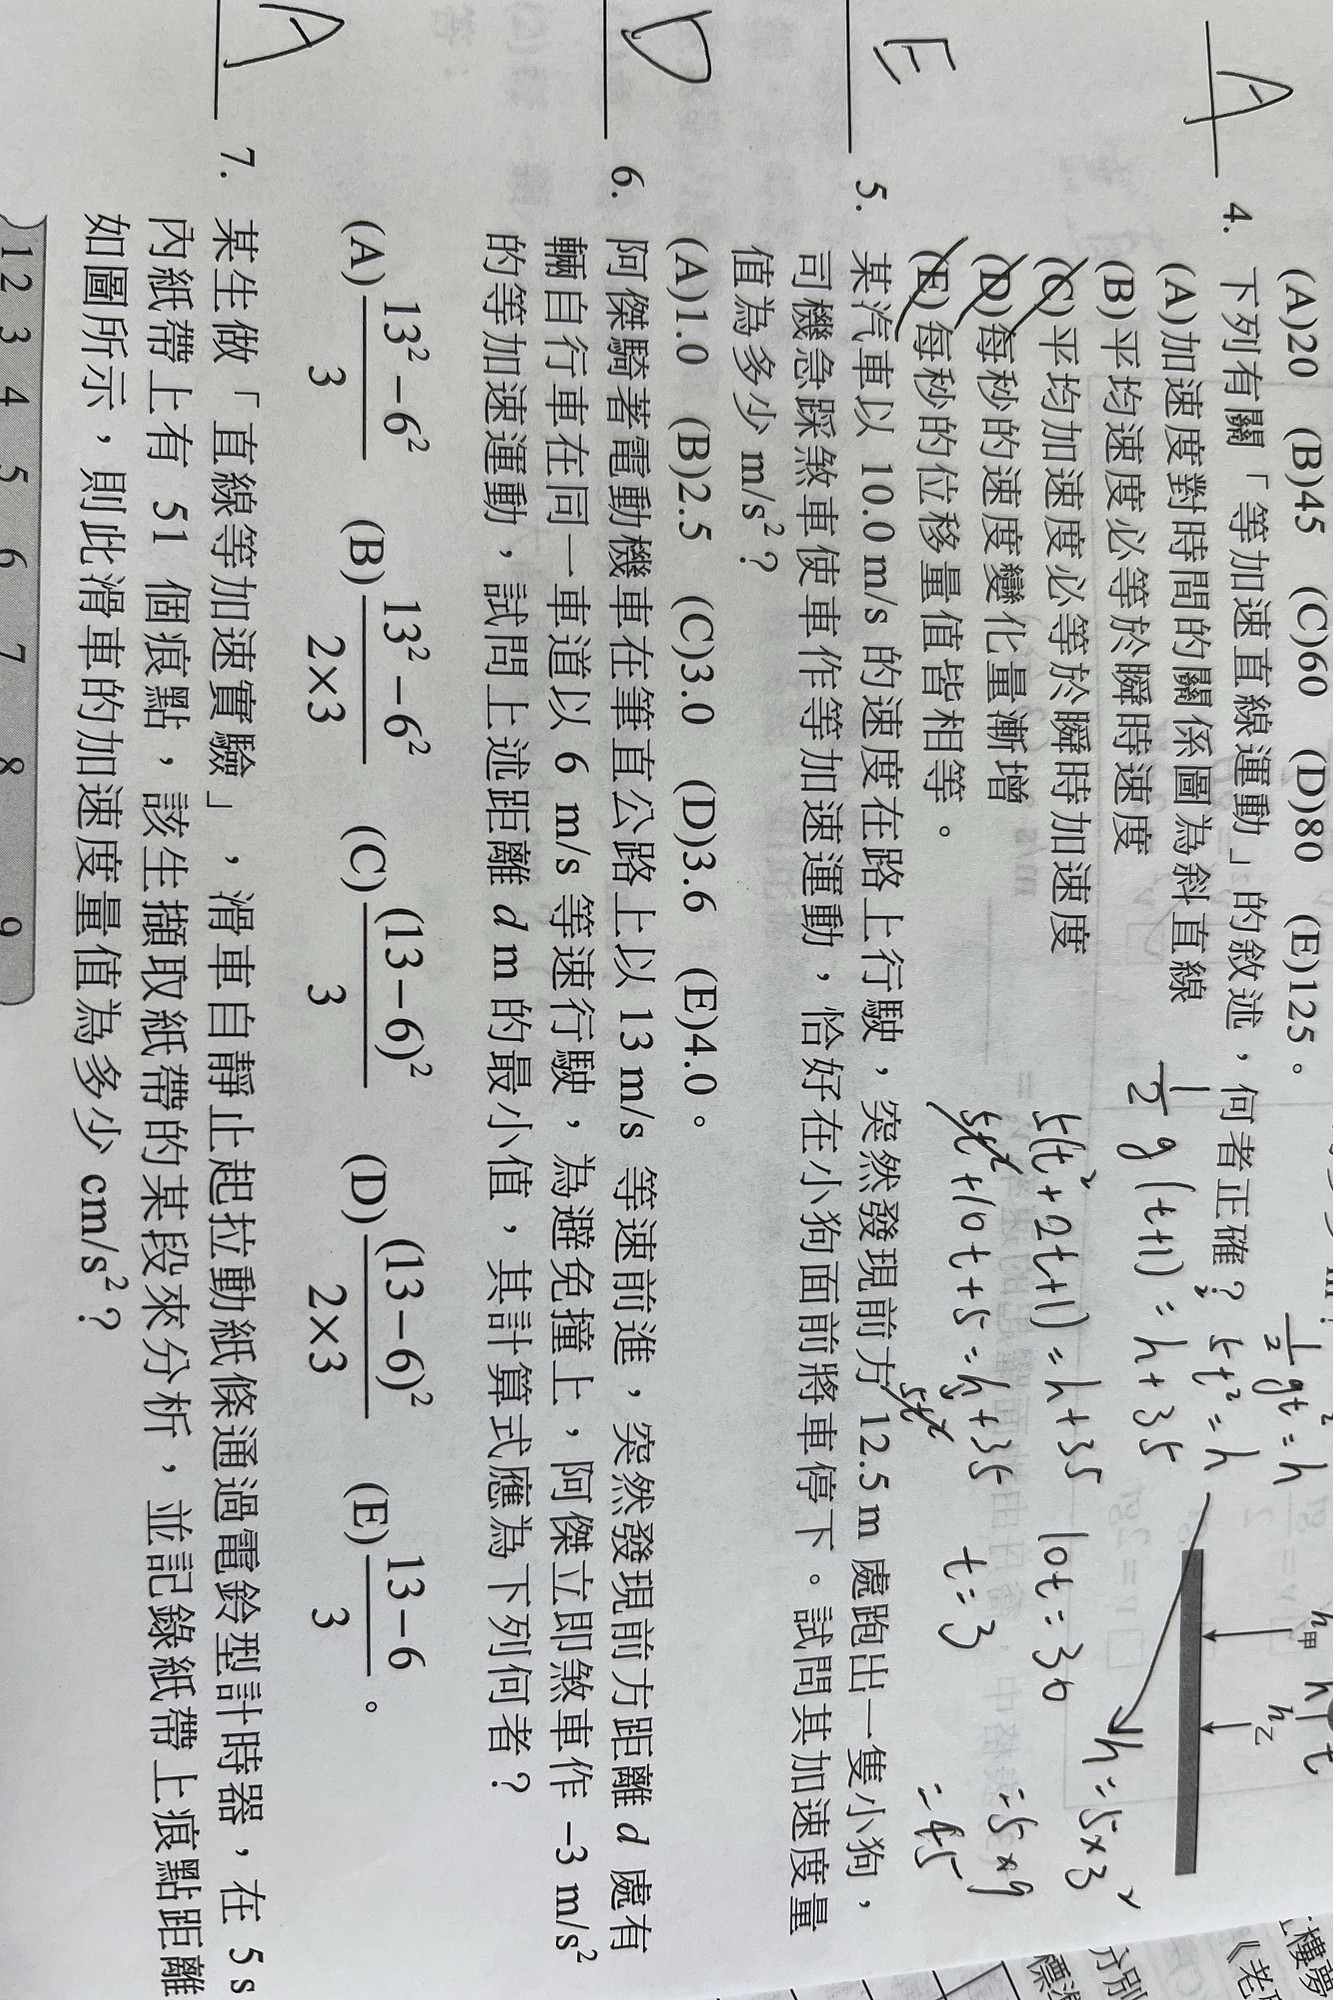 (A)20 (B)45 (C)60 (D)80 (E)125。
½gt²=h
h甲
h乙
A
4. 下列有關「等加速直線運動」的敘述，何者正確？
5t²=h
(A)加速度對時間的關係圖為斜直線
½g(t+1)²=h+35
(B)平均速度必等於瞬時速度
h=5×3²
(C)平均加速度必等於瞬時加速度
5(t²+2t+1)=h+35
10t=30
(D)每秒的速度變化量漸增
5t²+10t+5=h+35
t=3
=5×9
(E)每秒的位移量值皆相等。
5t²
=45
E
5. 某汽車以 10.0 m/s 的速度在路上行駛，突然發現前方 12.5 m 處跑出一隻小狗，
司機急踩煞車使車作等加速運動，恰好在小狗面前將車停下。試問其加速度量
值為多少 m/s²？
(A)1.0 (B)2.5 (C)3.0 (D)3.6 (E)4.0。
D
6. 阿傑騎著電動機車在筆直公路上以 13 m/s 等速前進，突然發現前方距離 d 處有
輛自行車在同一車道以 6 m/s 等速行駛，為避免撞上，阿傑立即煞車作 −3 m/s²
的等加速運動，試問上述距離 d m 的最小值，其計算式應為下列何者？
(A) (13²−6²)/3 (B) (13²−6²)/(2×3) (C) (13−6)²/3 (D) (13−6)²/(2×3) (E) (13−6)/3 。
A
7. 某生做「直線等加速實驗」，滑車自靜止起拉動紙條通過電鈴型計時器，在 5 s
內紙帶上有 51 個痕點，該生擷取紙帶的某段來分析，並記錄紙帶上痕點距離
如圖所示，則此滑車的加速度量值為多少 cm/s²？
1 2 3 4 5 6 7 8 9